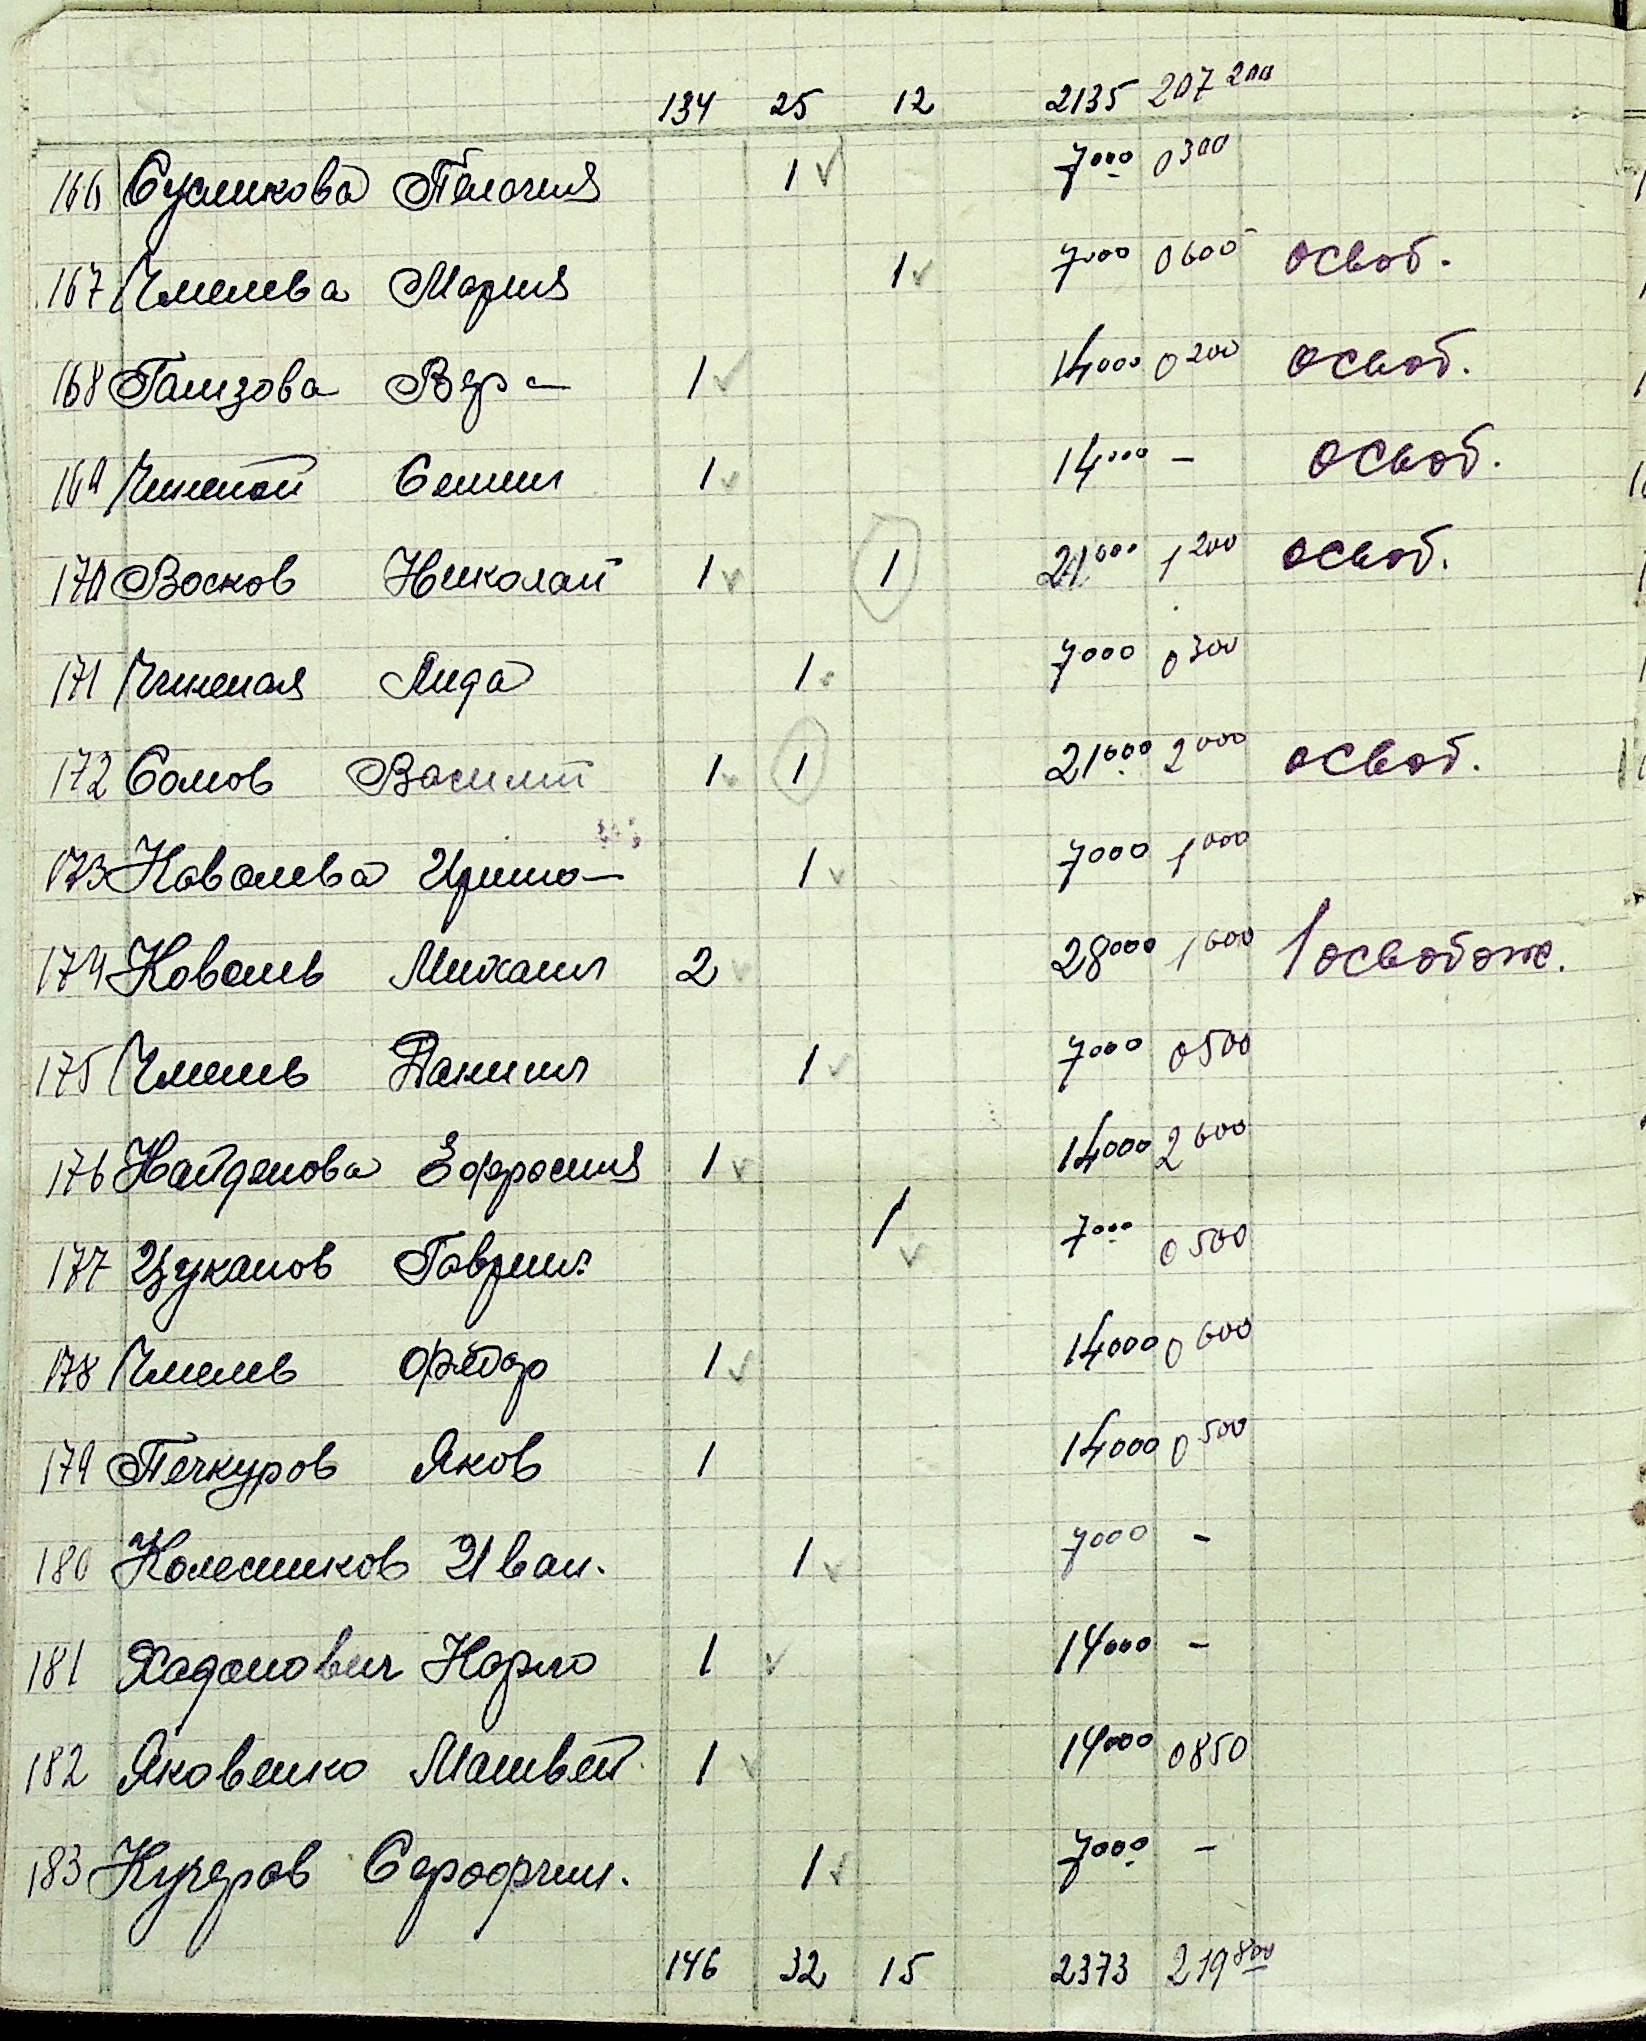 134 25 12 2135 207 200
166 Сусликова Пелагия 1 7000 0300
167 Чмелева Мария 1 7000 0600 освоб.
168 Вера 1 14000 0200 освоб.
169 Семен 1 14000 - освоб.
170 Восков Николай 1 1 21000 1200 освоб.
171 Лида 1 7000 0300
172 Сомов Василий 1 1 21000 2000 освоб.
173 Ковалева Ирина 1 7000 1000
174 Ковалев Михаил 2 28000 1600 1 освобож.
175 Чмелев Даниил 1 7000 0500
176 Найденова Ефросиния 1 14000 2600
177 Цуканов Гаврил 1 7000 0500
178 Чмелев Фёдор 1 14000 0600
179 Печкуров Яков 1 14000 0500
180 Колесников Иван. 1 7000 -
181 Хаданович Карло 1 14000 -
182 Яковенко Матвей 1 14000 0850
183 Кучеров Серафим. 1 7000 -
146 32 15 2373 219 800